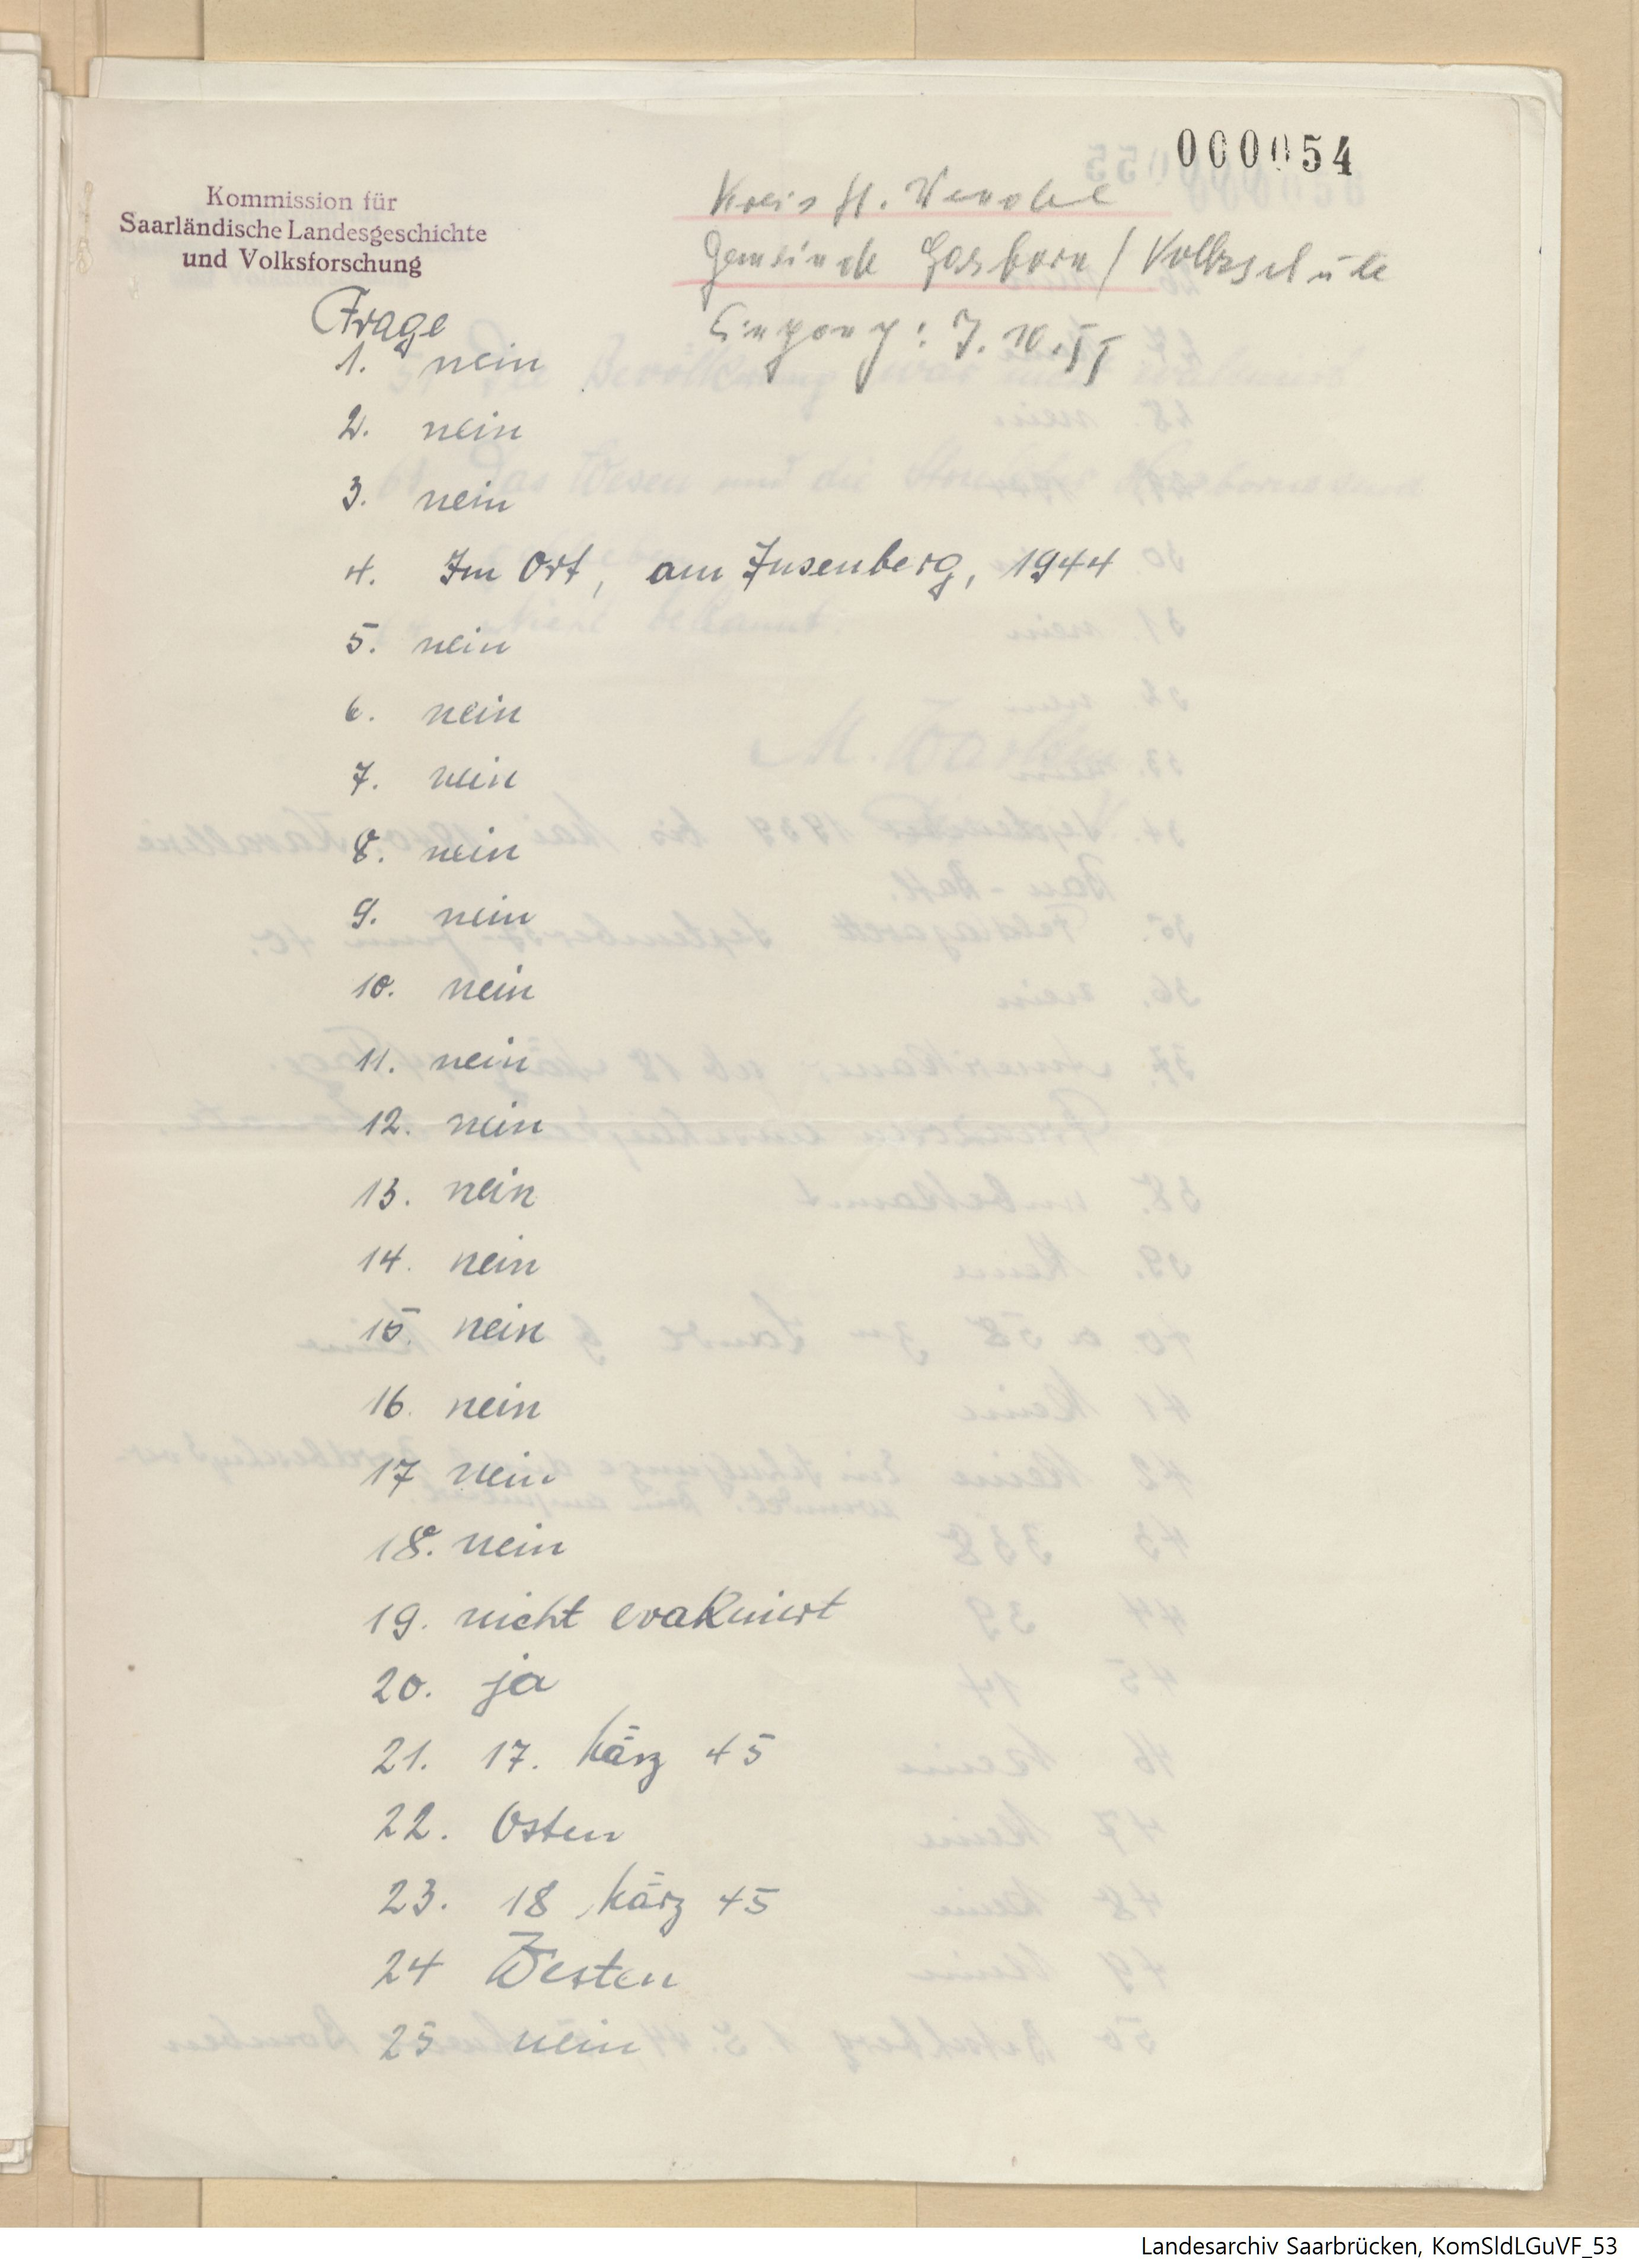 000054
Kommission für
Saarländische Landesgeschichte
und Volksforschung
Kreis St. Wendel
Gemeinde Hasborn / Volksschule
Eingang: 7.10.55
Frage
1. nein
2. nein
3. nein
4. Im Ort, am Jusenberg, 1944
5. nein
6. nein
7. nein
8. nein
9. nein
10. nein
11. nein
12. nein
13. nein
14. nein
15. nein
16. nein
17 nein
18. nein
19. nicht evakuiert
20. ja
21. 17. März 45
22. Osten
23. 18 März 45
24 Westen
25 nein
Landesarchiv Saarbrücken, KomSldLGuVF_53